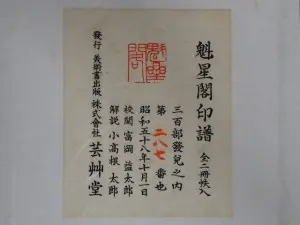 魁星閣印譜 全二冊帙入
三百部發兌之内
第 二八七 番也
昭和五十八年十月一日
校閲 富岡 益太郎
解説 小高根 太郎
發行 美術書出版 株式會社 芸艸堂